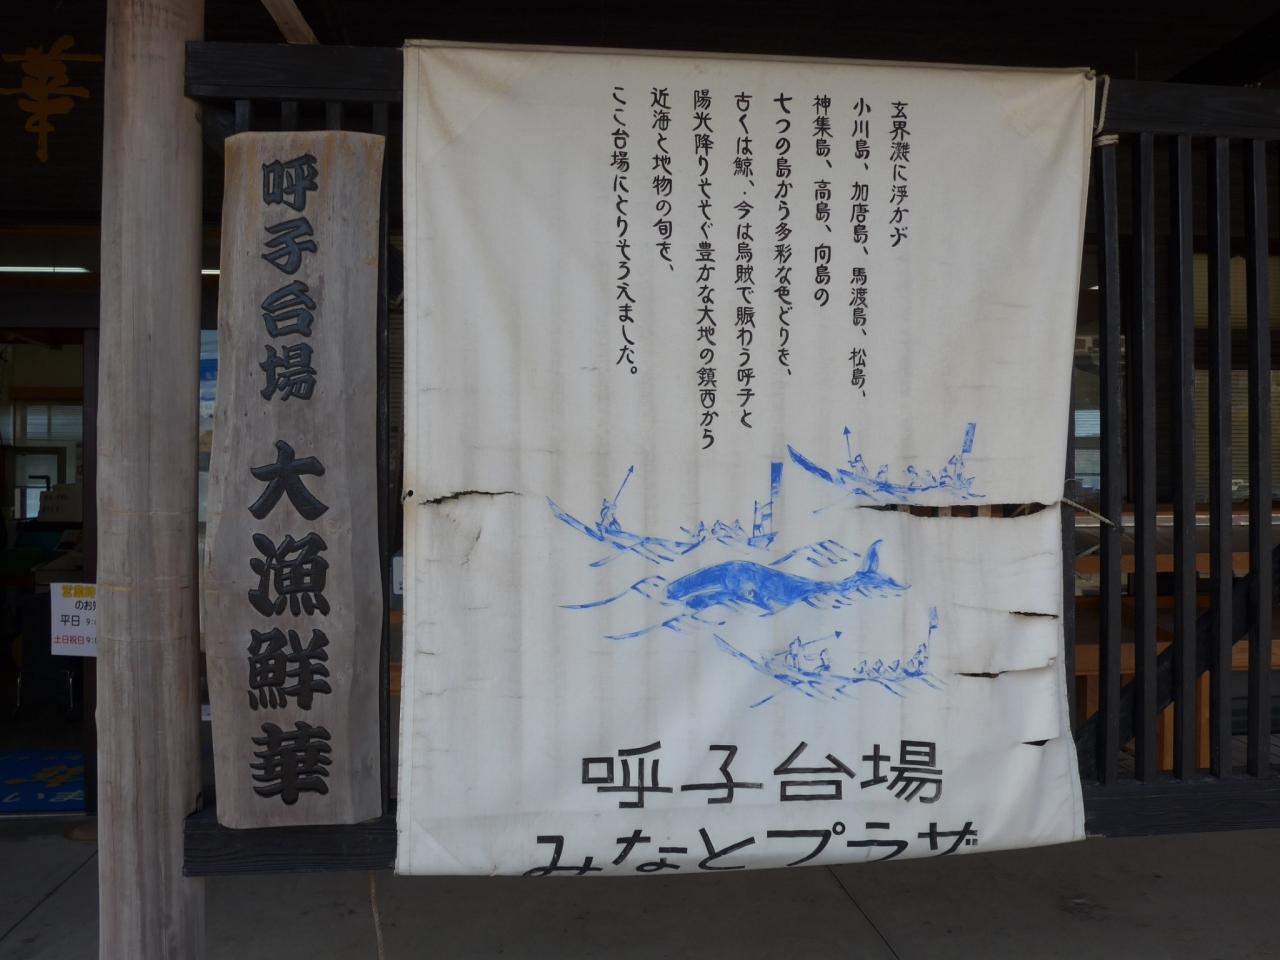 華
呼子台場 大漁鮮華
玄界灘に浮かぶ
小川島、加唐島、馬渡島、松島、
神集島、高島、向島の
七つの島から多彩な色どりを、
古くは鯨、今は烏賊で賑わう呼子と
陽光降りそそぐ豊かな大地の鎮西から
近海と地物の旬を、
ここ台場にとりそろえました。
呼子台場
みなとプラザ
営業時
のお知
平日 9:
土日祝日 9: